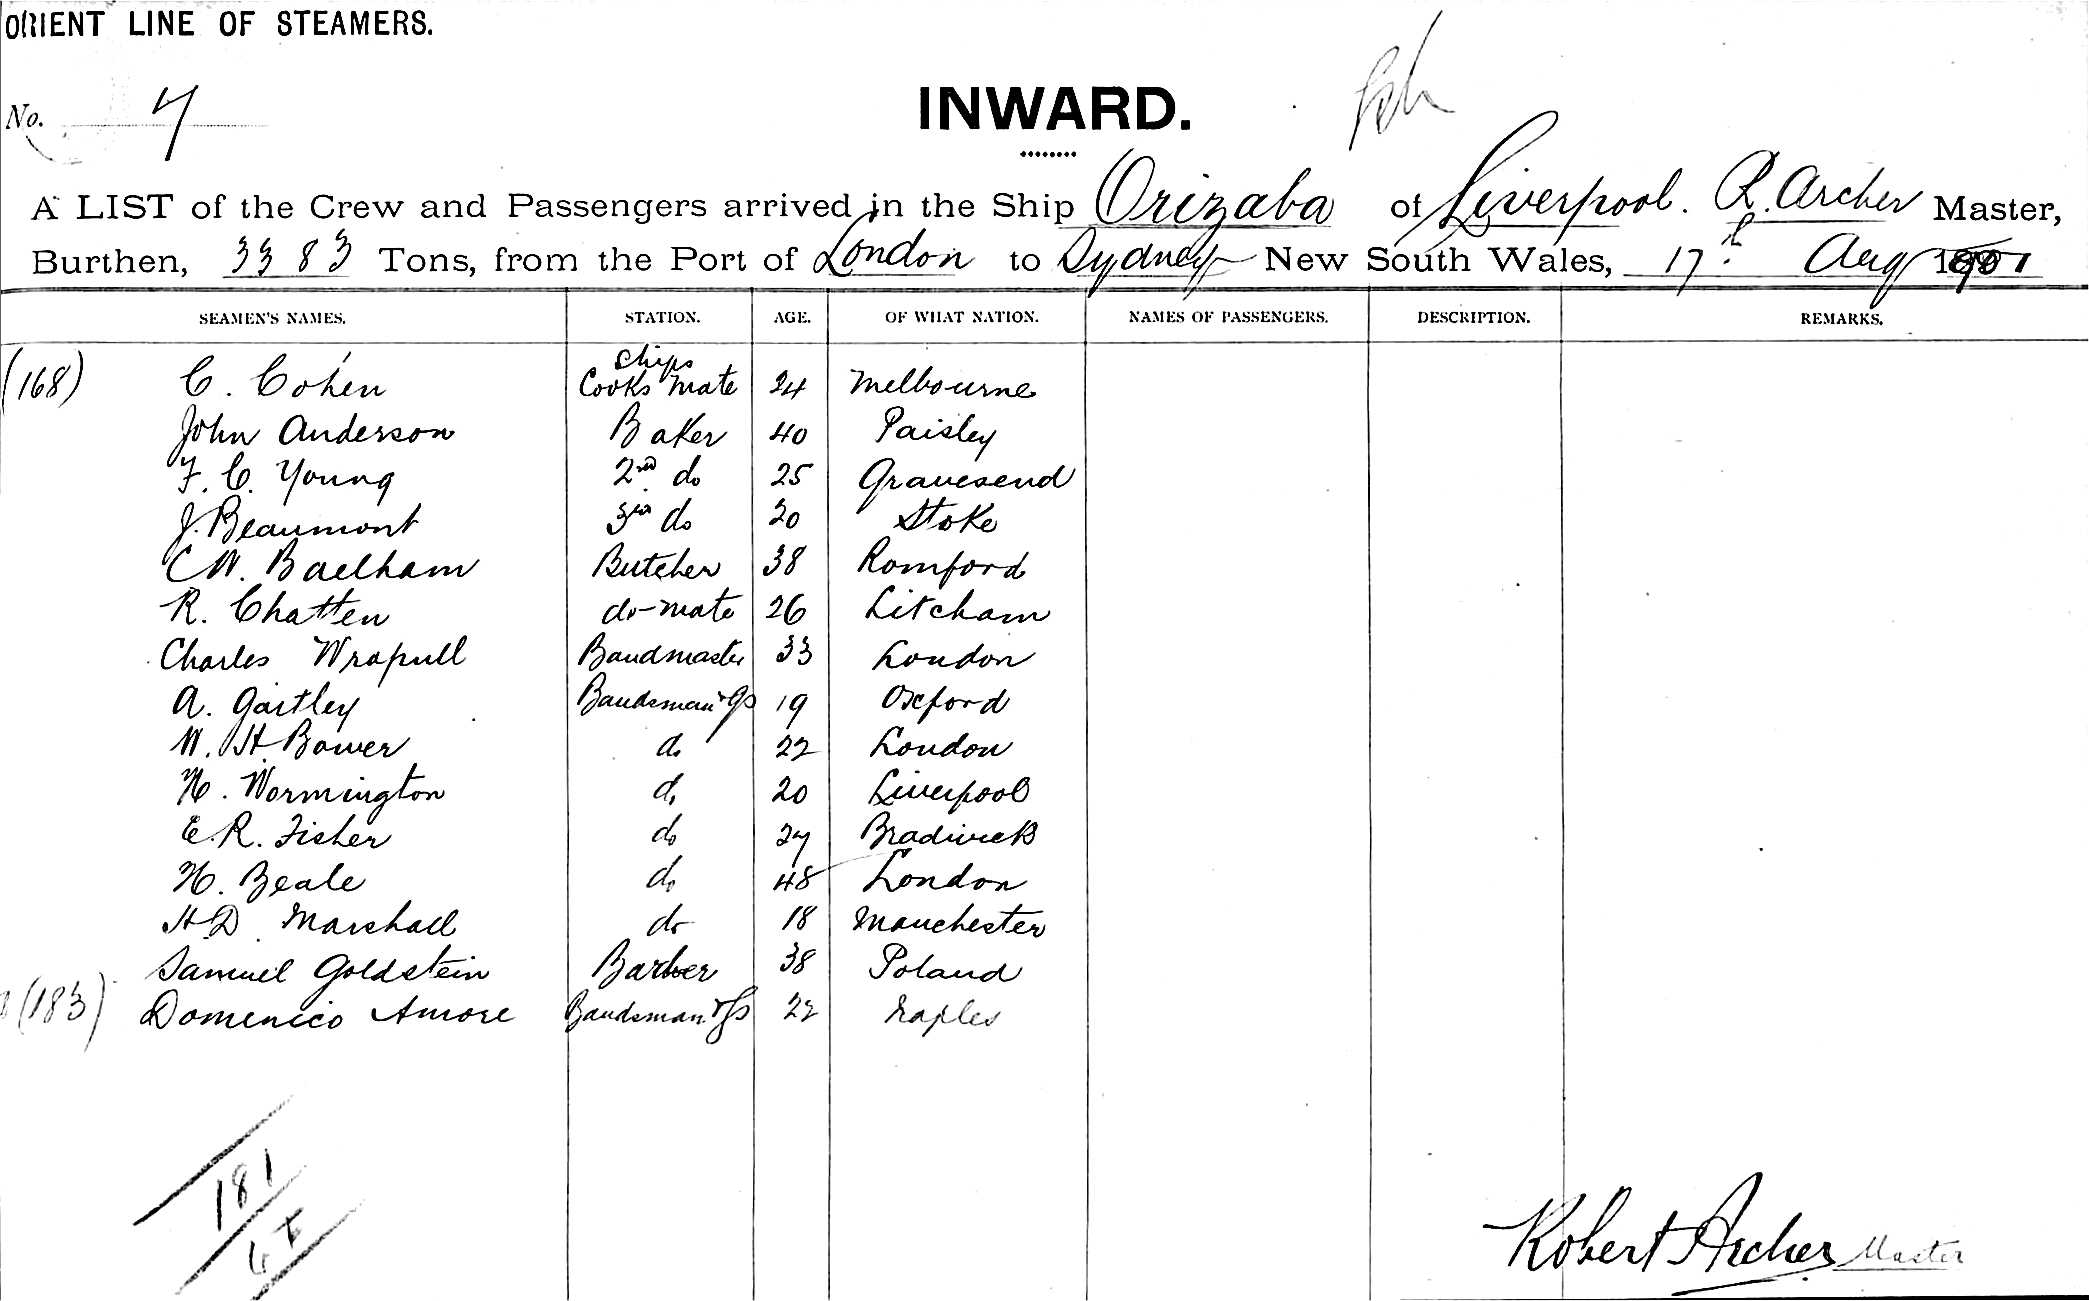 ORIENT LINE OF STEAMERS.
No. 7
INWARD.
A LIST of the Crew and Passengers arrived in the Ship Orizaba of Liverpool. R. Archer Master,
Burthen, 3383 Tons, from the Port of London to Sydney New South Wales, 17th Aug 1901
SEAMEN'S NAMES. STATION. AGE. OF WHAT NATION. NAMES OF PASSENGERS. DESCRIPTION. REMARKS.
Ships
(168) C. Cohen Cooks Mate 24 Melbourne
John Anderson Baker 40 Paisley
F. C. Young 2nd do 25 Gravesend
J. Beaumont 3rd do 20 Stoke
C W. Baelham Butcher 38 Romford
R. Chatten do mate 26 Litcham
Charles Wrapull Bandmaster 33 London
A. Gartley Bandsman & GS 19 Oxford
W. H. Bower do 22 London
H. Wormington do 20 Liverpool
E. R. Fisher do 27
H. Beale do 48 London
H D Marshall do 18 Manchester
Samuel Goldstein Barber 38 Poland
(183) Domenico Amore Bandsman & GS 22 Naples
181
Robert Archer Master